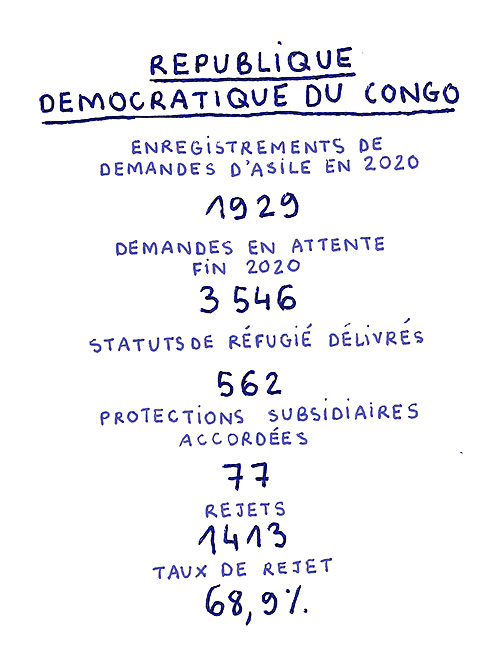 REPUBLIQUE
DEMOCRATIQUE DU CONGO
ENREGISTREMENTS DE
DEMANDES D'ASILE EN 2020
1929
DEMANDES EN ATTENTE
FIN 2020
3 546
STATUTS DE RÉFUGIÉ DÉLIVRÉS
562
PROTECTIONS SUBSIDIAIRES
ACCORDÉES
77
REJETS
1413
TAUX DE REJET
68,9%